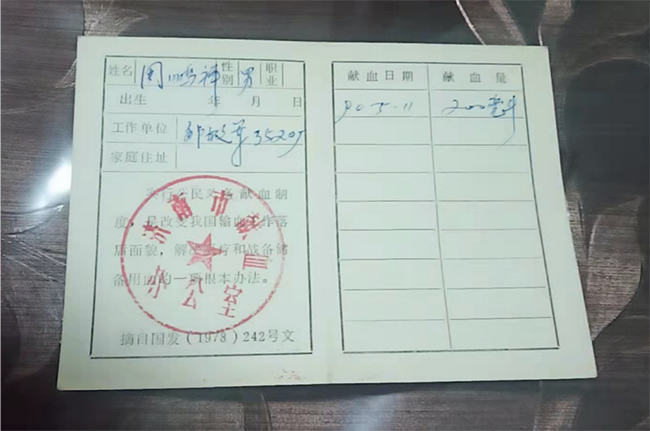 姓名 周鸣禅 性别 男 职业
出生 年 月 日
工作单位 解放军35205
家庭住址
实行公民义务献血制
度，是改变我国输血工作落
后面貌，解决医疗和战备储
备用血的一项根本办法。
摘自国发(1978)242号文
济南市献血
办公室
献血日期 献血量
90-5-11 200毫升